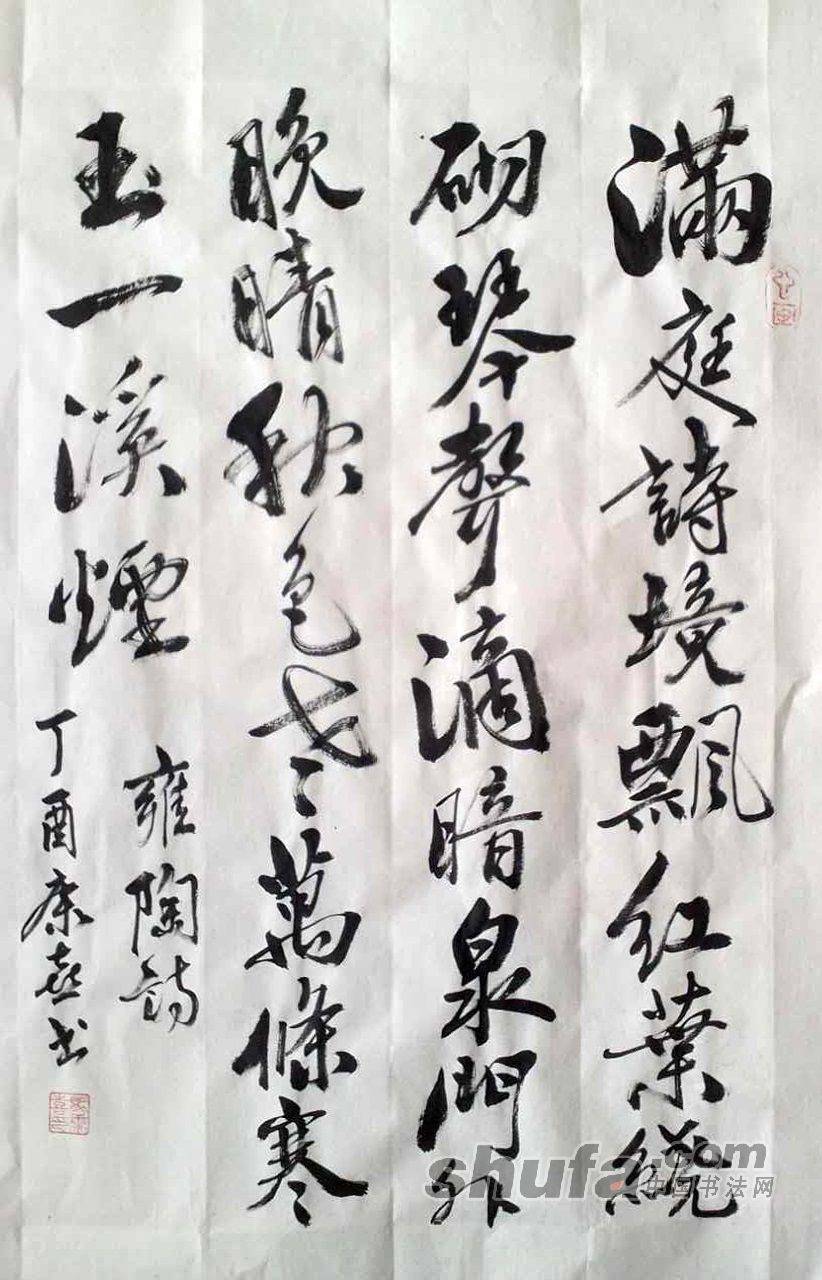 滿庭詩境飄紅葉繞
砌琴聲滴暗泉門外
晚晴秋色老萬條寒
玉一溪煙
雍陶詩
丁酉康喜书
shufa.com
中国书法网